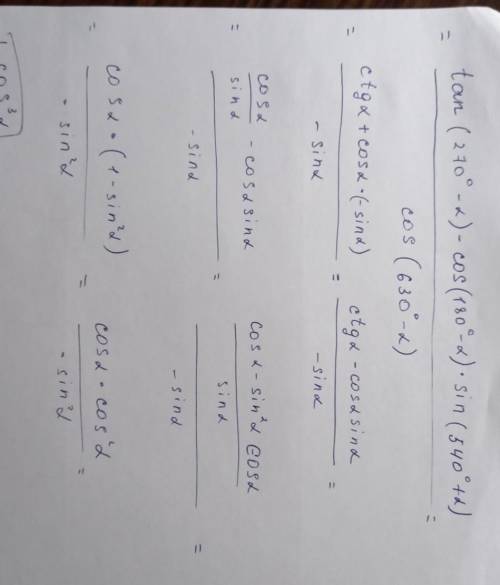 = tan(270°-α)-cos(180°-α)·sin(540°+α) / cos(630°-α) =
= ctgα+cosα·(-sinα) / -sinα = ctgα-cosαsinα / -sinα =
= cosα/sinα - cosαsinα / -sinα = cosα-sin²αcosα / sinα / -sinα =
= cosα·(1-sin²α) / -sin²α = cosα·cos²α / -sin²α =
cos³α